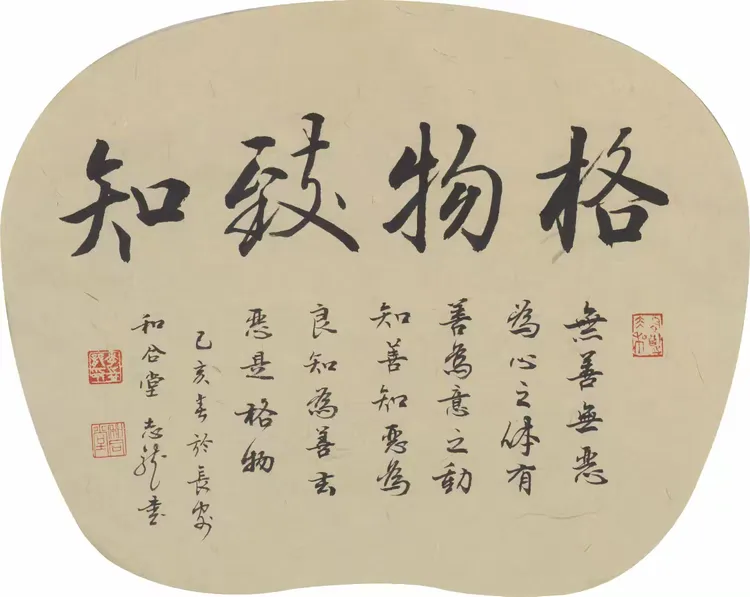 格物致知
無善無惡
為心之体有
善為意之動
知善知惡為
良知為善去
惡是格物
己亥春於長安
和合堂志龍書